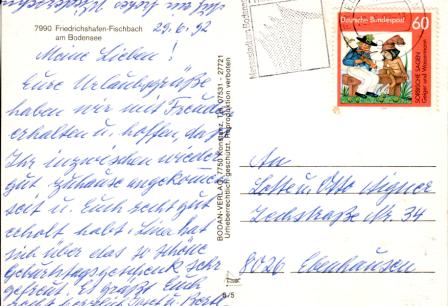 7990 Friedrichshafen-Fischbach
am Bodensee
29.6.92
Meine Lieben!
Eure Urlaubsgrüße
haben wir mit Freude
erhalten u. hoffen, daß
Ihr inzwischen wieder
gut zuhause angekommen
seit u. Euch recht gut
erholt habt.
sich über das so schöne
Geburtstagsgeschenk sehr
gefreut. Es grüßt Euch
BODAN-VERLAG, 7750 Konstanz, Tel. 07531 - 27721
Urheberrechtlich geschützt, Reproduktion verboten
8/5
Deutsche Bundespost
60
SORBISCHE SAGEN
Geiger und Wassermann
An
Lotte u. Otto Aigner
Zechstraße Nr. 34
8026 Ebenhausen